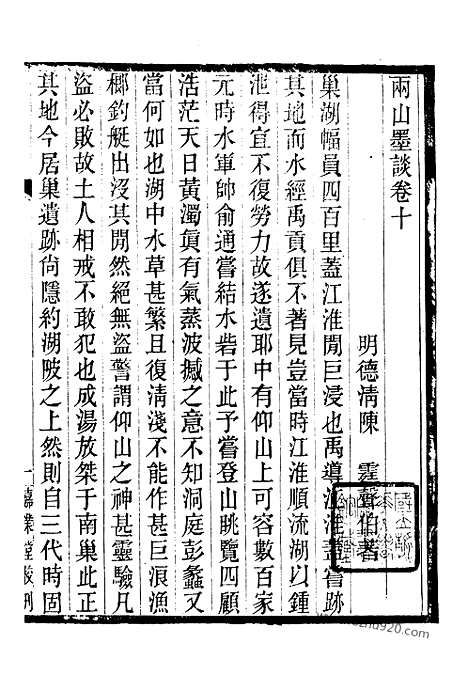 兩山墨談卷十
明德清陳　霆聲伯著
巢湖幅員四百里蓋江淮閒巨浸也禹導江淮蓋嘗跡
其地而水經禹貢俱不著見豈當時江淮順流湖以鍾
泄得宜不復勞力故遂遺耶中有仰山上可容數百家
元時水軍帥俞通嘗結水砦于此予嘗登山眺覽四顧
浩茫天日黃濁眞有氣蒸波撼之意不知洞庭彭蠡又
當何如也湖中水草甚繁且復淸淺不能作甚巨浪漁
榔釣艇出沒其閒然絕無盜警謂仰山之神甚靈驗凡
盜必敗故土人相戒不敢犯也成湯放桀于南巢此正
其地今居巢遺跡尙隱約湖陂之上然則自三代時固
一 嘉業堂校刊